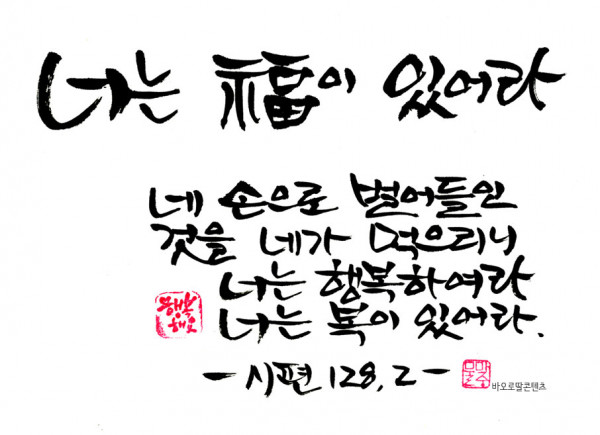 너는 福이 있어라
네 손으로 벌어들인
것을 네가 먹으리니
너는 행복하여라
너는 복이 있어라.
-시편 128, 2-
행복
해요
바오로딸콘텐츠